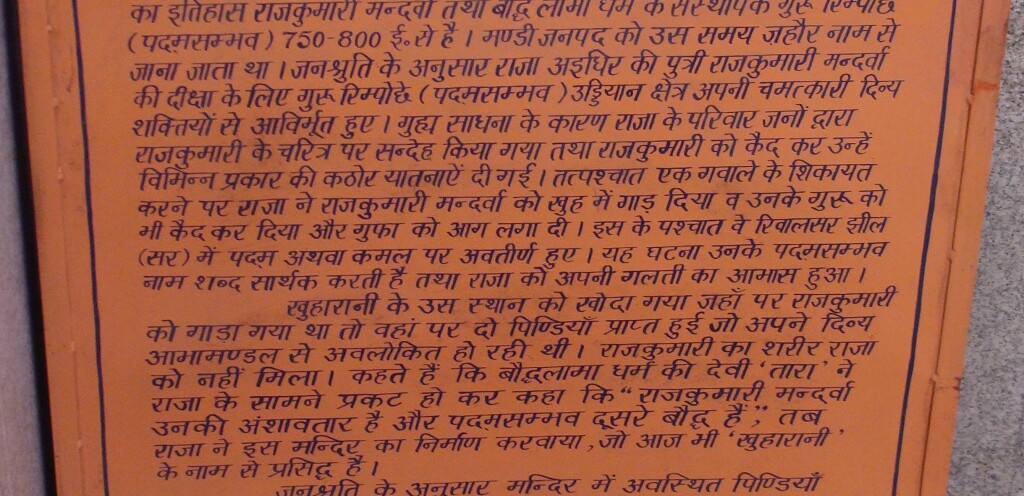 का इतिहास राजकुमारी मन्दर्वा तथा बौद्ध लामा धर्म के संस्थापक गुरू रिम्पोछे
(पदमसम्भव) 750-800 ई. से है। मण्डी जनपद को उस समय ज़हौर नाम से
जाना जाता था। जनश्रुति के अनुसार राजा अइधिर की पुत्री राजकुमारी मन्दर्वा
की दीक्षा के लिए गुरू रिम्पोछे (पदमसम्भव) उड्डियान क्षेत्र अपनी चमत्कारी दिव्य
शक्तियों से आविर्भूत हुए। गुह्य साधना के कारण राजा के परिवार जनों द्वारा
राजकुमारी के चरित्र पर सन्देह किया गया तथा राजकुमारी को कैद कर उन्हें
विभिन्न प्रकार की कठोर यातनाऐं दी गई। तत्पश्चात एक गवाले के शिकायत
करने पर राजा ने राजकुमारी मन्दर्वा को खुह में गाड़ दिया व उनके गुरू को
भी कैद कर दिया और गुफा को आग लगा दी। इस के पश्चात वे रिवालसर झील
(सर) में पदम् अथवा कमल पर अवतीर्ण हुए। यह घटना उनके पदमसम्भव
नाम शब्द सार्थक करती है तथा राजा को अपनी गलती का आभास हुआ।
खुहारानी के उस स्थान को खोदा गया जहाँ पर राजकुमारी
को गाड़ा गया था तो वहां पर दो पिण्डियाँ प्राप्त हुई जो अपने दिव्य
आभामण्डल से अवलोकित हो रही थी। राजकुमारी का शरीर राजा
को नहीं मिला। कहते हैं कि बौद्धलामा धर्म की देवी 'तारा' ने
राजा के सामने प्रकट हो कर कहा कि "राजकुमारी मन्दर्वा
उनकी अंशावतार है और पदमसम्भव दूसरे बौद्ध हैं", तब
राजा ने इस मन्दिर का निर्माण करवाया, जो आज भी 'खुहारानी'
के नाम से प्रसिद्ध है।
जनश्रुति के अनुसार मन्दिर में अवस्थित पिण्डियाँ